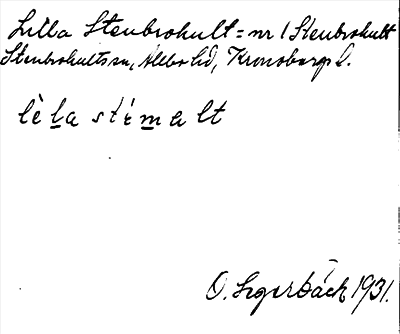 Lilla Stenbrohult = nr 1 Stenbrohult
Stenbrohults sn, Allbo hd, Kronobergs l.
lè la stémalt
O. Segerbäck 1931.